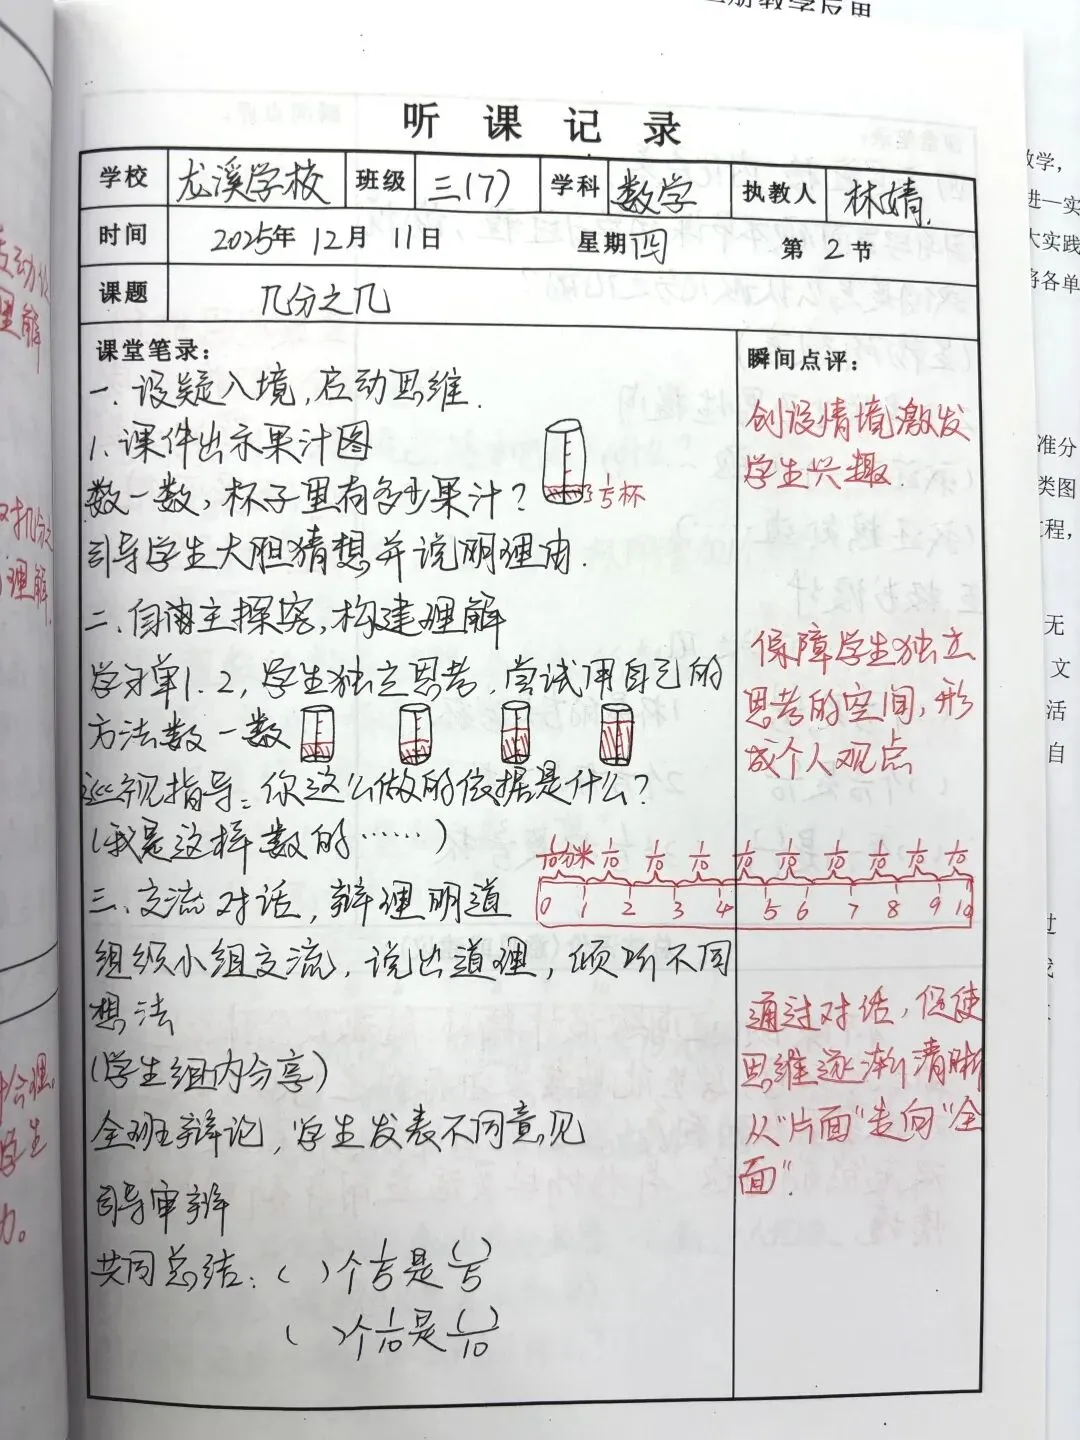 听课记录
学校 龙溪学校 班级 三(7) 学科 数学 执教人 林婧.
时间 2025年 12月 11日 星期四 第 2 节
课题 几分之几
课堂笔录：
一. 设疑入境,启动思维.
1. 课件出示果汁图
数一数, 杯子里有多少果汁?
1/5杯
引导学生大胆猜想并说明理由.
二. 自主探究,构建理解
学习单1. 2, 学生独立思考, 尝试用自己的
方法数一数
巡视指导: 你这么做的依据是什么?
(我是这样数的……)
1/10分米 1/10 1/10 1/10 1/10 1/10 1/10 1/10 1/10 1/10
0 1 2 3 4 5 6 7 8 9 10
三、交流对话, 辩理明道
组织小组交流, 说出道理, 倾听不同
想法
(学生组内分享)
全班辩论, 学生发表不同意见
引导审辩
共同总结: ( )个1/5是( )/5
( )个1/10是( )/10
瞬间点评：
创设情境激发
学生兴趣
保障学生独立
思考的空间, 形
成个人观点
通过对话, 促使
思维逐渐清晰
从"片面"走向"全
面".
教学,
进一实
大实践
将各单
准分
类图
过程,
无
文
活
自
过
理解
理解.
合理.
学生
力。